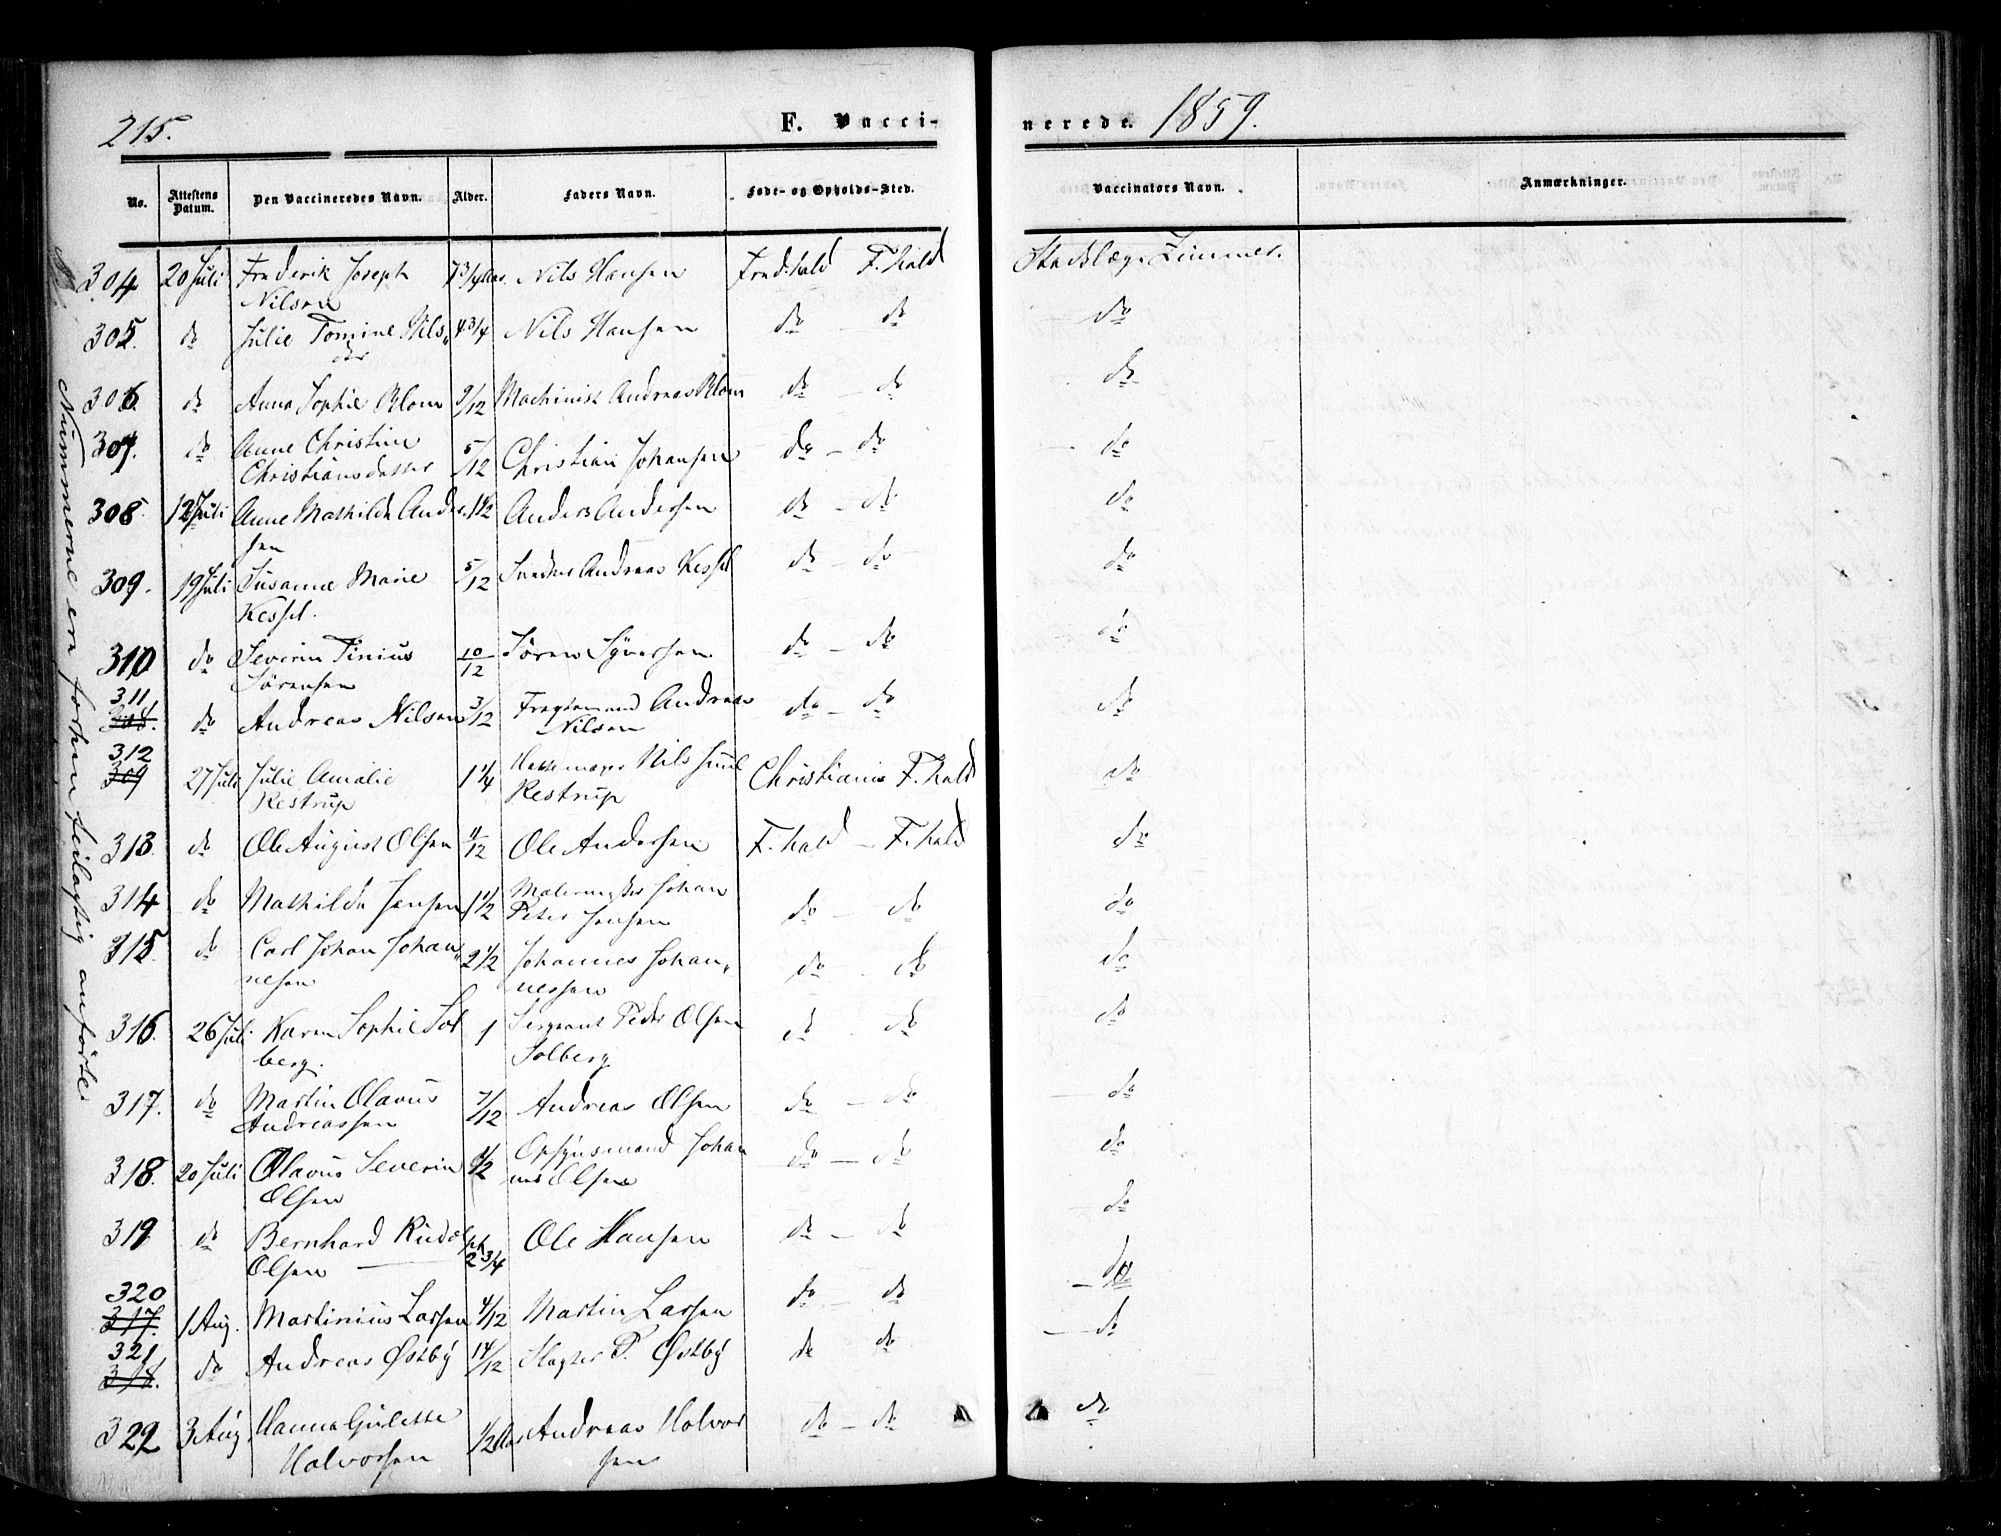 215. F. Vacci-nerede. 1859.
No. Attestens Datum. Den Vaccineredes Navn. Alder. Faders Navn. Føde- og Opholds-Sted. Vaccinators Navn. Anmærkninger.
304 20 Juli Frederik Joseph 7 3/4 Aar. Nils Hansen Fredhald F.hald Stadslæge Zimmer.
Nilsen
305. do Julie Tomine Nils„ 4 3/4 Nils Hansen do - do do
dtr
306. do Anna Sophie Blom 9/12 Machinist Andreas Blom do - do do
307. do Anne Christine 5/12 Christian Johansen do - do do
Christiansdatter
308. 12 Juli Anne Mathilde Ander 1 1/2 Anders Andersen do - do do
sen
309. 19 Juli Susanne Marie 5/12 Snedker Andreas Kessel do - do do
Kessel.
310 do Severin Tinius 10/12 Sören Syversen do - do do
Sörensen
311
308. do Andreas Nilsen 3/12 Fragtemand Andreas do - do do
Nilsen
312
309 27 Juli Julie Amalie 1 1/4 Hattemager Nils Juul Christiania F.hald do
Restrup Restrup
313. do Ole August Olsen 11/12 Ole Andersen F.hald - F.hald do
314 do Mathilde Jensen 1 1/2 Malermester Johan do - do do
Peter Jensen
315. do Carl Johan Johan„ 2 1/2 Johannes Johan„ do - do do
nesen nessen
316. 26 Juli Karen Sophie Sol 1 Sergeant Peder Olsen do do do
berg. Solberg
317. do Martin Olavus 7/12 Andreas Olsen do - do do
Andreassen
318. 20 Juli Olavus Severin 1/2 Opsynsmand Johan do - do do
Olsen nes Olsen
319 do Bernhard Rudol ph Ole Hansen do - do do
Olsen 2 3/4
320
317. 1 Aug. Martinius Larsen 4/12 Martin Larsen do - do do
321
318. do Andreas Østby 14/12 Slagter P. Østby do do do
322 3 Aug Hanna Gulette 1/2 Aar Andreas Halvor do - do do
Halvorsen sen
Nummerne ere forhen feilagtig anførte